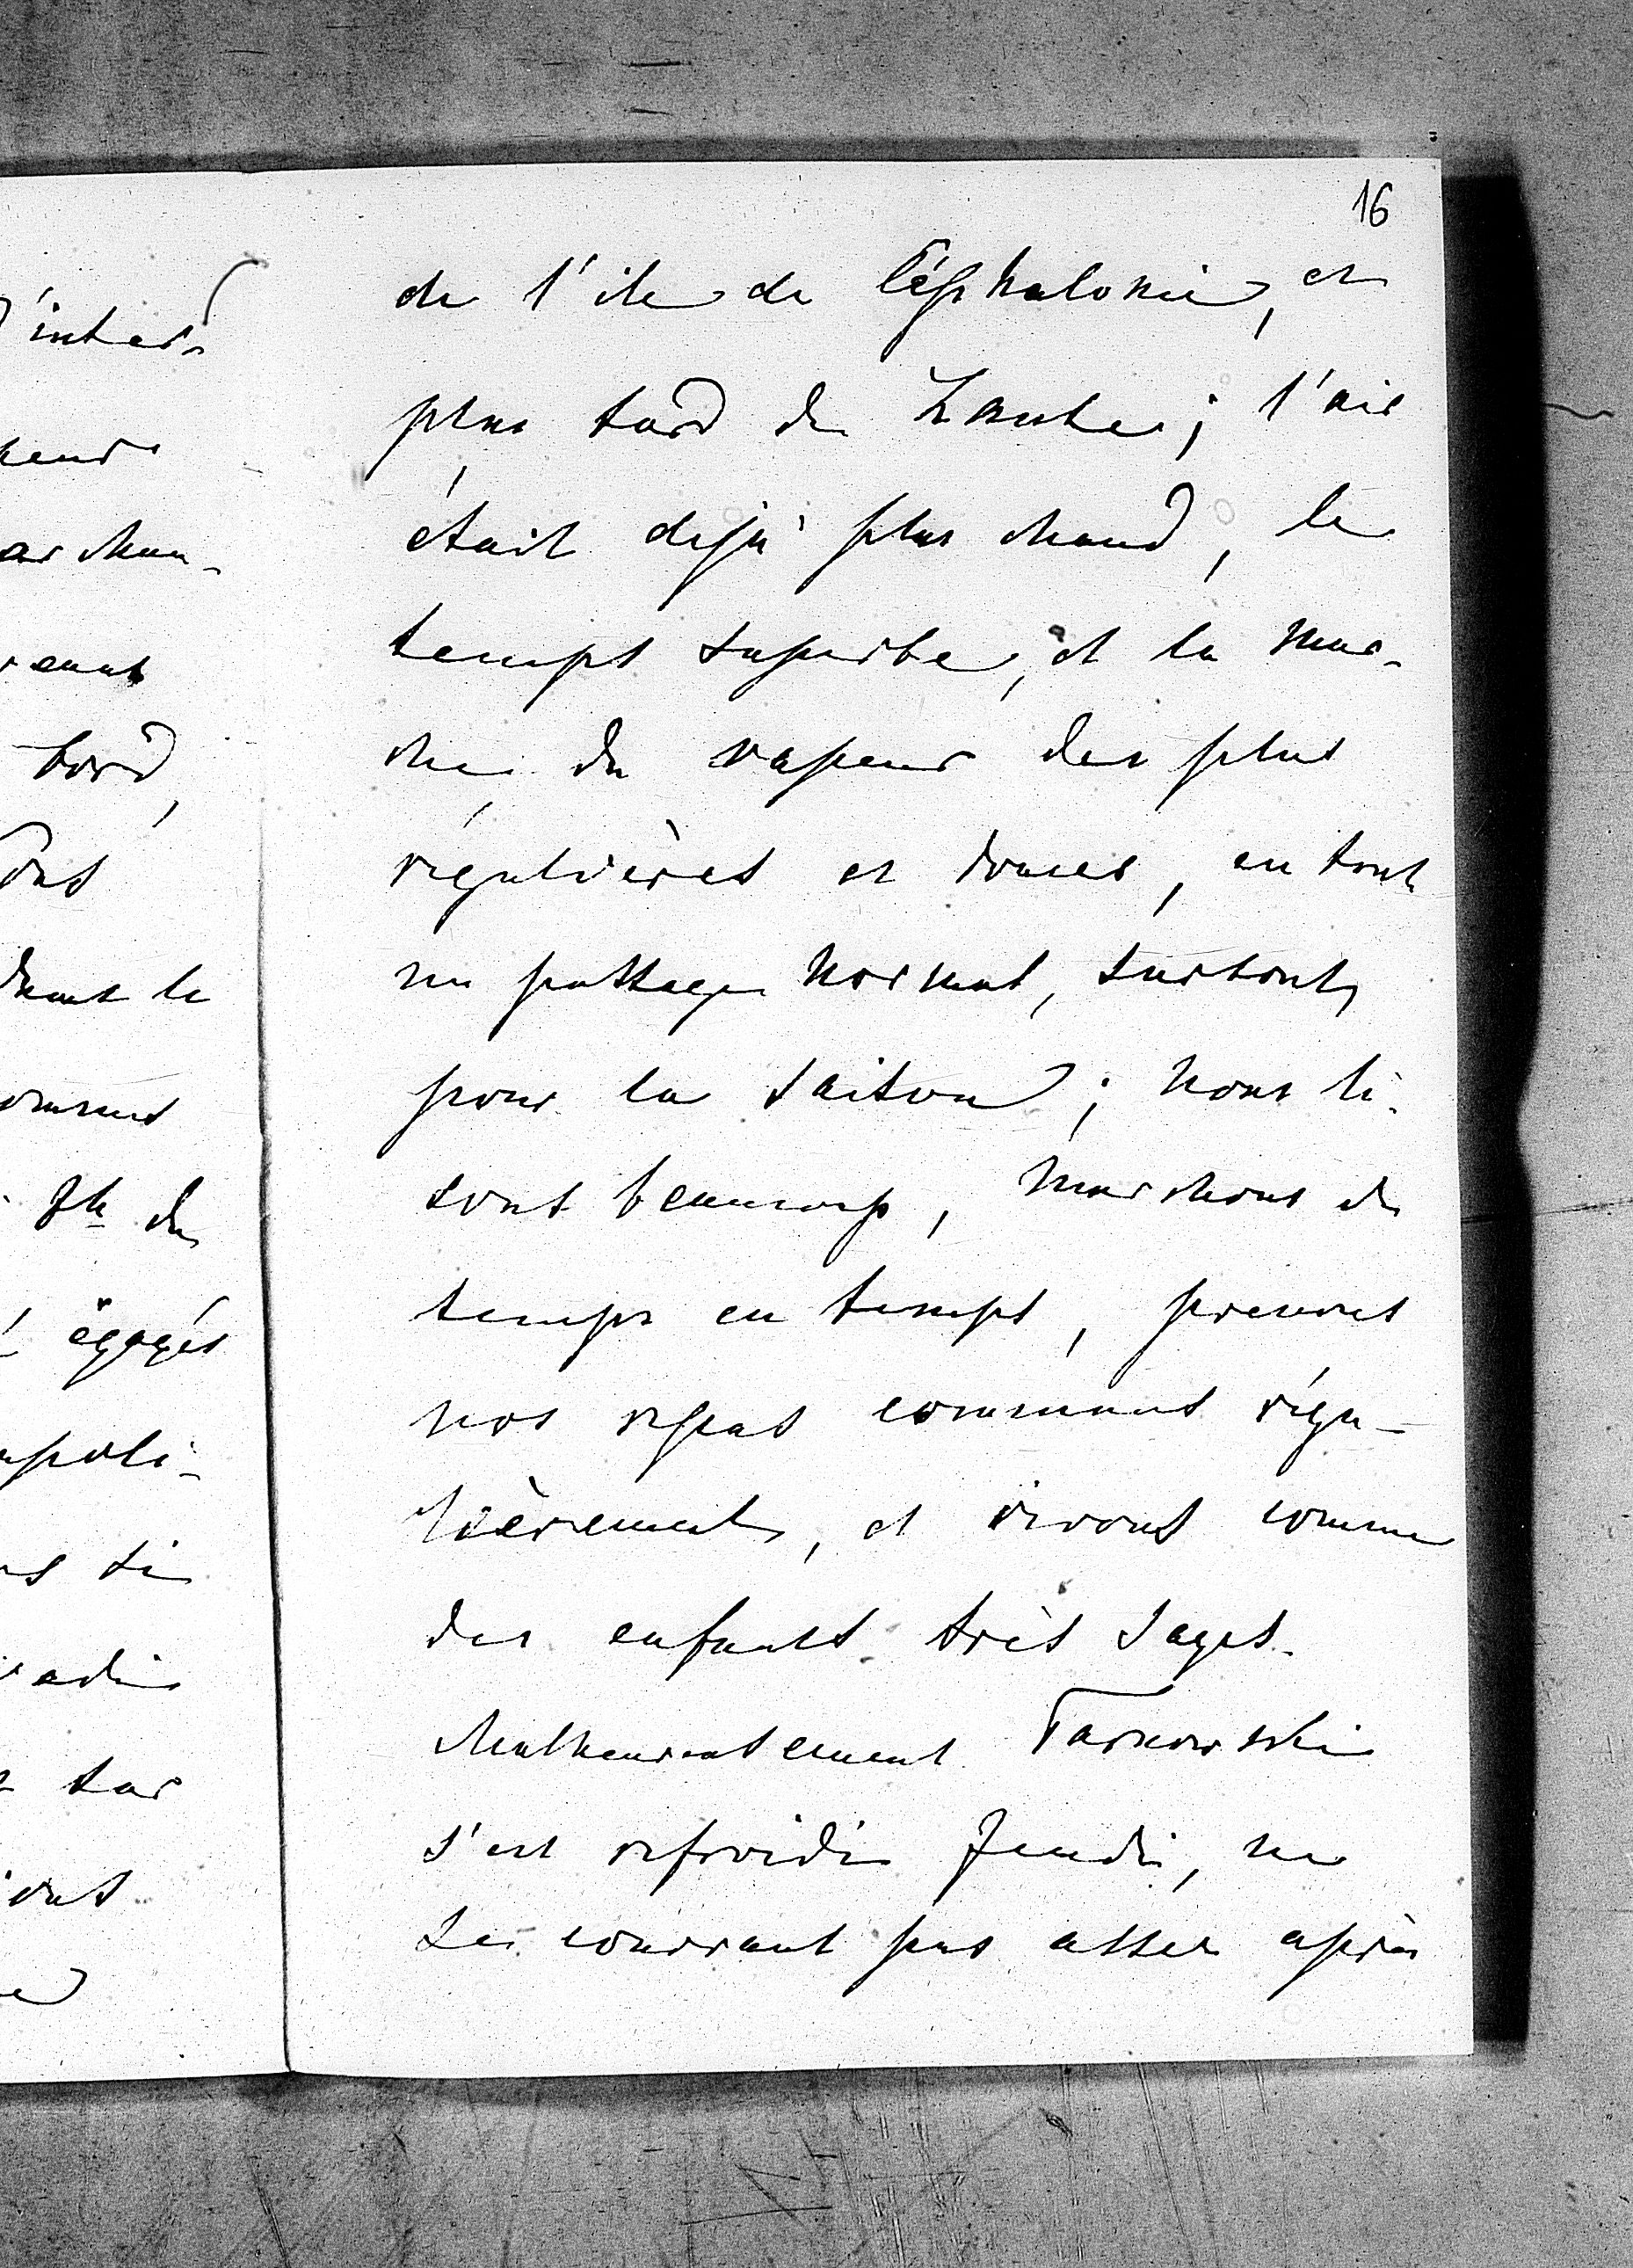 16
de l'ile de Céphalonie, et
plus tard de Zante; l'air
était dejà plus chaud, le
temps superbe, et la mar-
che du vapeur des plus
régulières et douces, en tout
un passage normal, surtout
pour la saison; nous li-
sons beaucoup, marchons de
temps en temps, prenons
nos repas communs régu-
lièrement, et vivons comme
des enfants très sages.
Malheureusement Tarnowski
s'est refroidi Jeudi, ne
se couvrant pas assez après
bord,